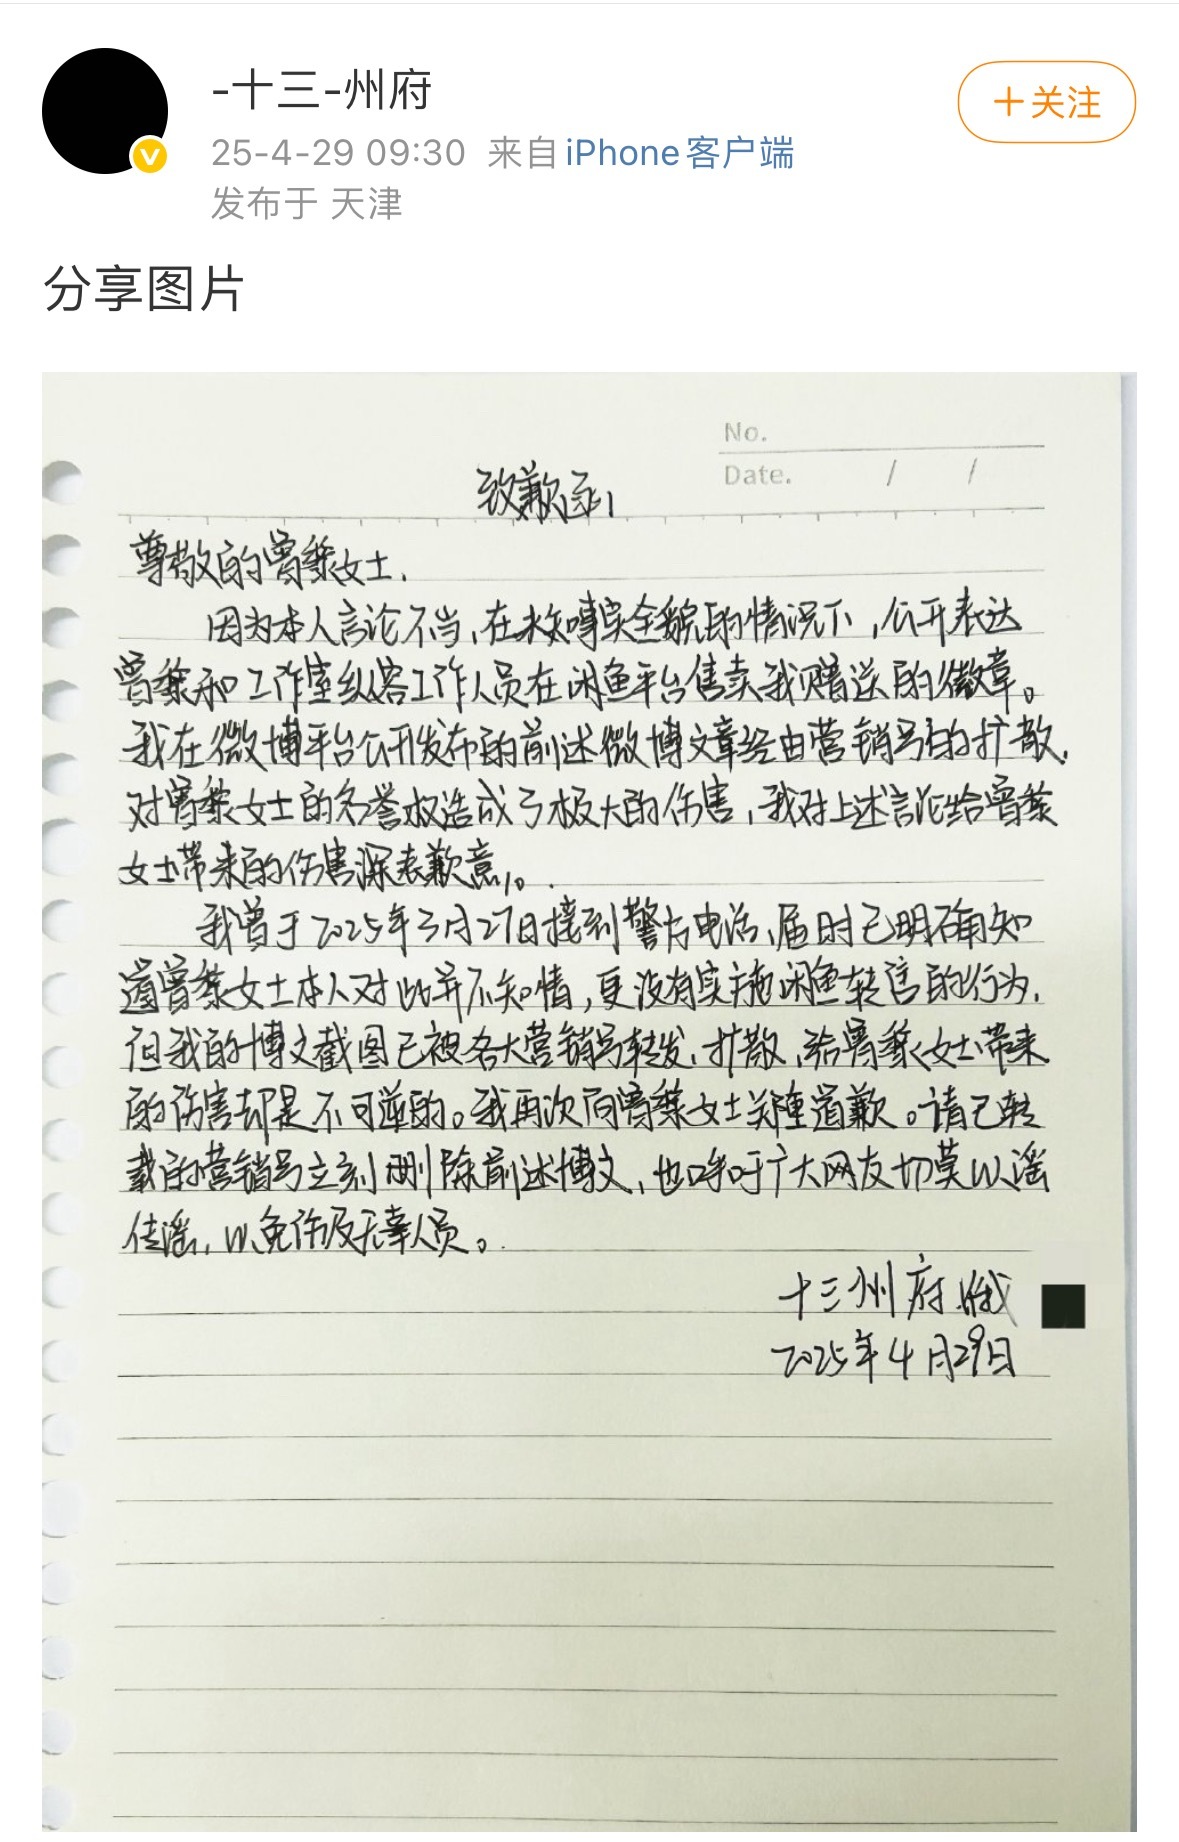 -十三-州府
+关注
25-4-29 09:30 来自 iPhone客户端
发布于 天津
分享图片
No.
Date. / /
致歉函
尊敬的曾黎女士，
因为本人言论不当，在未知事实全貌的情况下，公开表达
曾黎和工作室纵容工作人员在闲鱼平台售卖我赠送的徽章。
我在微博平台公开发布的前述微博文章经由营销号的扩散，
对曾黎女士的名誉权造成了极大的伤害，我对上述言论给曾黎
女士带来的伤害深表歉意。
我曾于2025年3月27日接到警方电话，届时已明确知
道曾黎女士本人对此并不知情，更没有实施闲鱼转售的行为，
但我的博文截图已被各大营销号转发、扩散，给曾黎女士带来
的伤害却是不可逆的。我再次向曾黎女士郑重道歉。请已转
载的营销号立刻删除前述博文，也呼吁广大网友切莫以谣
传谣，以免伤及无辜人员。
十三州府
2025年4月29日